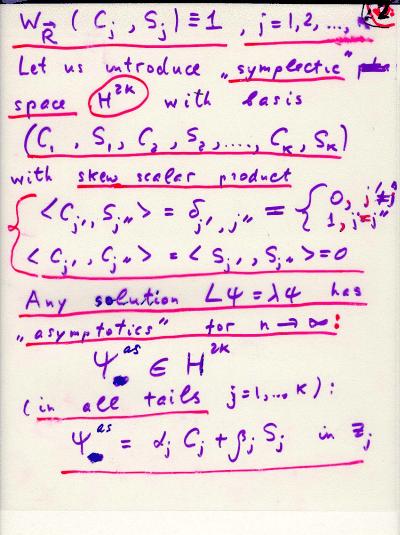 W_R⃗ (C_j, S_j) ≡ 1, j=1,2,...,
Let us introduce „symplectic"
space H^{2K} with basis
(C_1, S_1, C_2, S_2, ...., C_K, S_K)
with skew scalar product
<C_{j'}, S_{j''}> = δ_{j',j''} = { 0, j'≠j''
1, j'=j''
<C_{j'}, C_{j''}> = <S_{j'}, S_{j''}> = 0
Any solution LΨ = λΨ has
„asymptotics" for n → ∞:
Ψ^{as} ∈ H^{2K}
(in all tails j=1,...,K):
Ψ^{as} = α_j C_j + β_j S_j in z_j